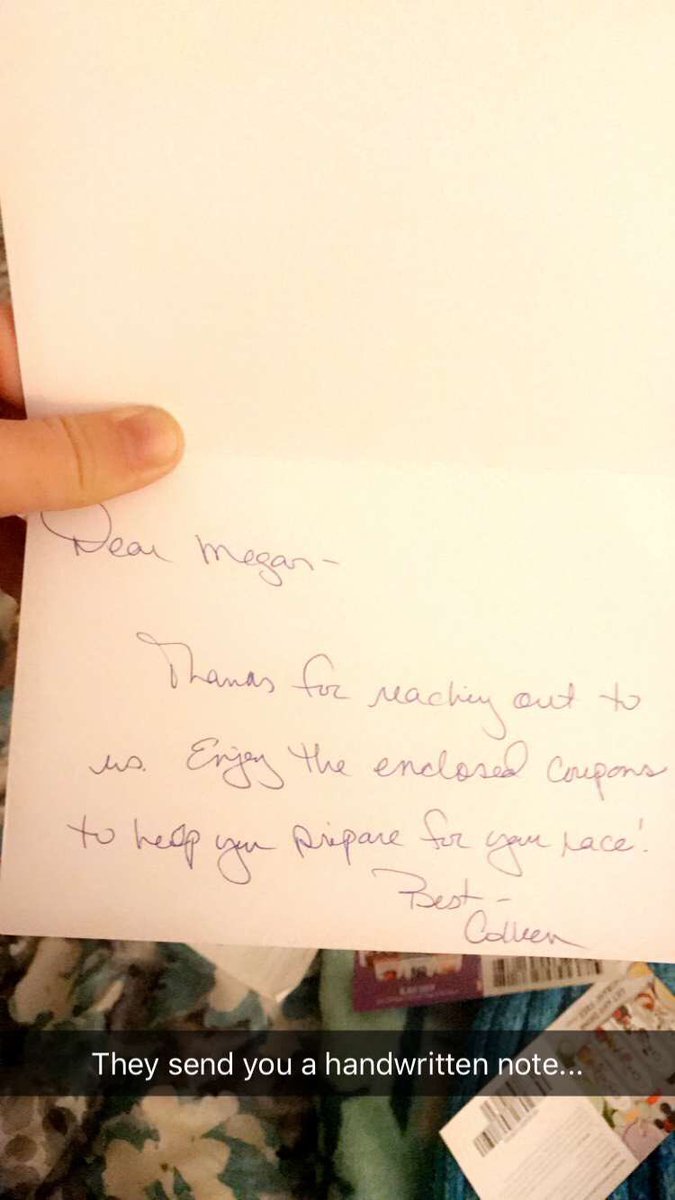 Dear Megan-
Thanks for reaching out to
us. Enjoy the enclosed coupons
to help you prepare for your race!
Best-
Colleen
They send you a handwritten note...